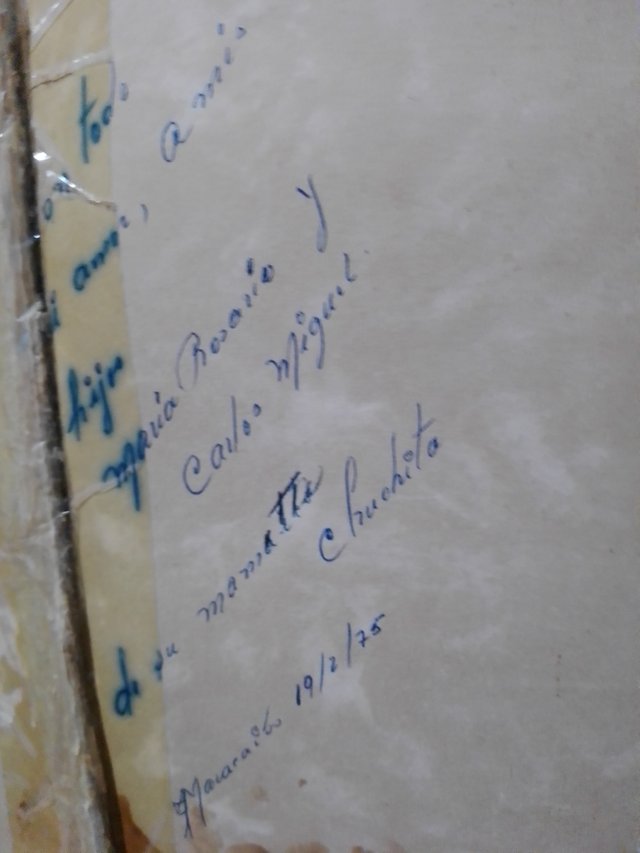 todo
mi amor, a mis
hijos
Maria Rosario y
Carlos Miguel.
de su mamatte
Chuchita
Maracaibo 19/2/75